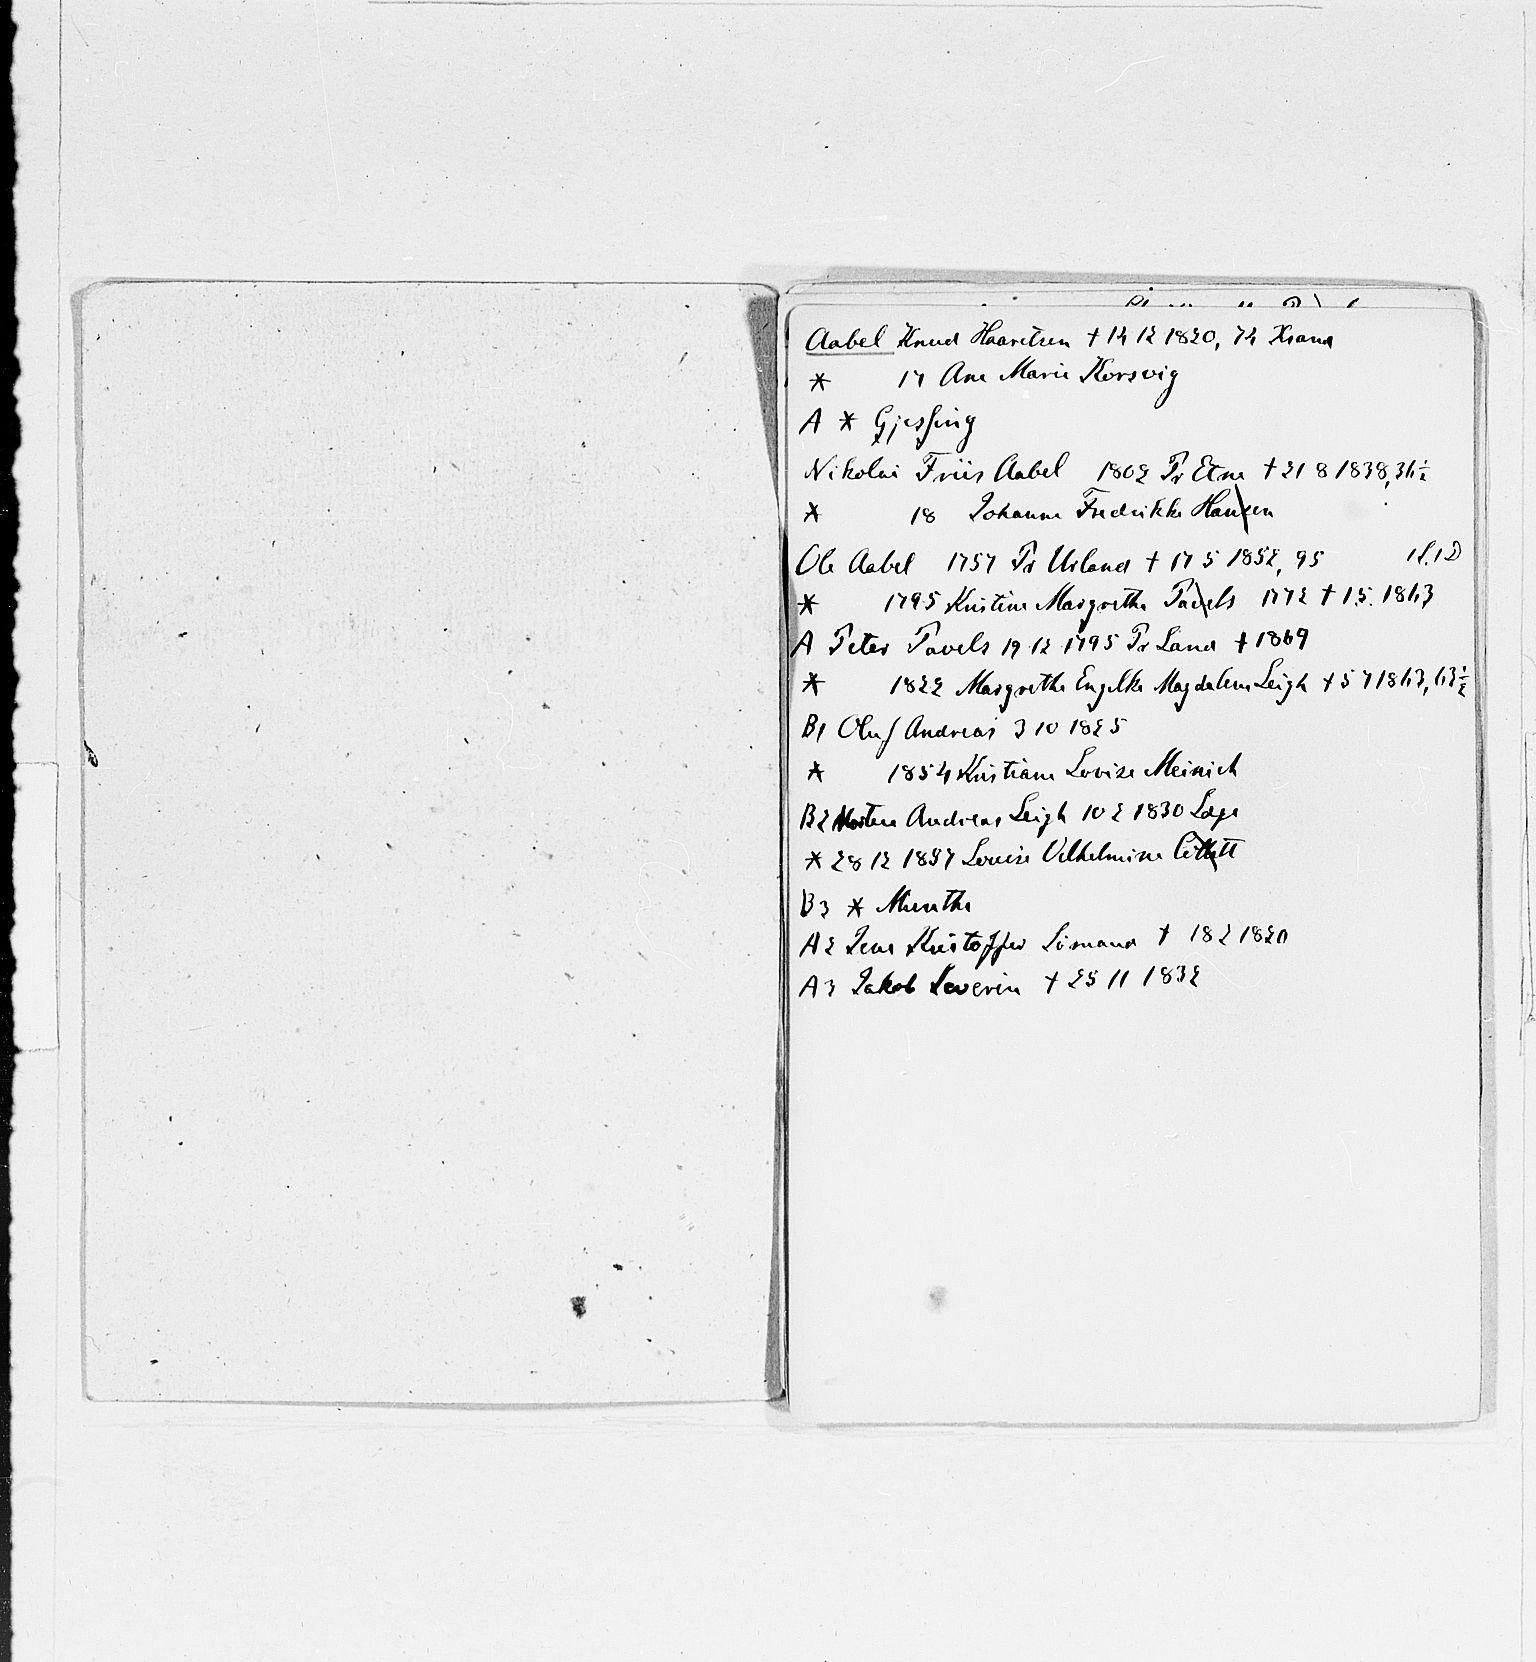 Aabel Knud Haavelsen † 14 12 1820, 74 Xsand
* 17 Ane Marie Korsvig
A * Gjessing
Nikolai Friis Aabel 1802 Pr Etne † 21 8 1838, 34½
* 18 Johanne Fredrikke Hansen
Ole Aabel 1757 Pr Urland † 17 5 1852, 95
* 1795 Kristine Margrethe Pavels 1772 † 1.5. 1843
A Peter Pavels 19 12 1795 Pr Land † 1869
* 1822 Margrethe Engelke Magdalene Leigh † 5 7 1843, 43½
B1 Oluf Andreas 3 10 1825
* 1854 Kristiane Lovise Meinich
B2 Andreas Leigh 10 2 1830 Læge
* 28 12 1857 Louise Vilhelmine Collett
B3 * Munthe
A2 Jens Kristoffer † 18 2 1820
A3 Jakob Severin † 25 11 1832